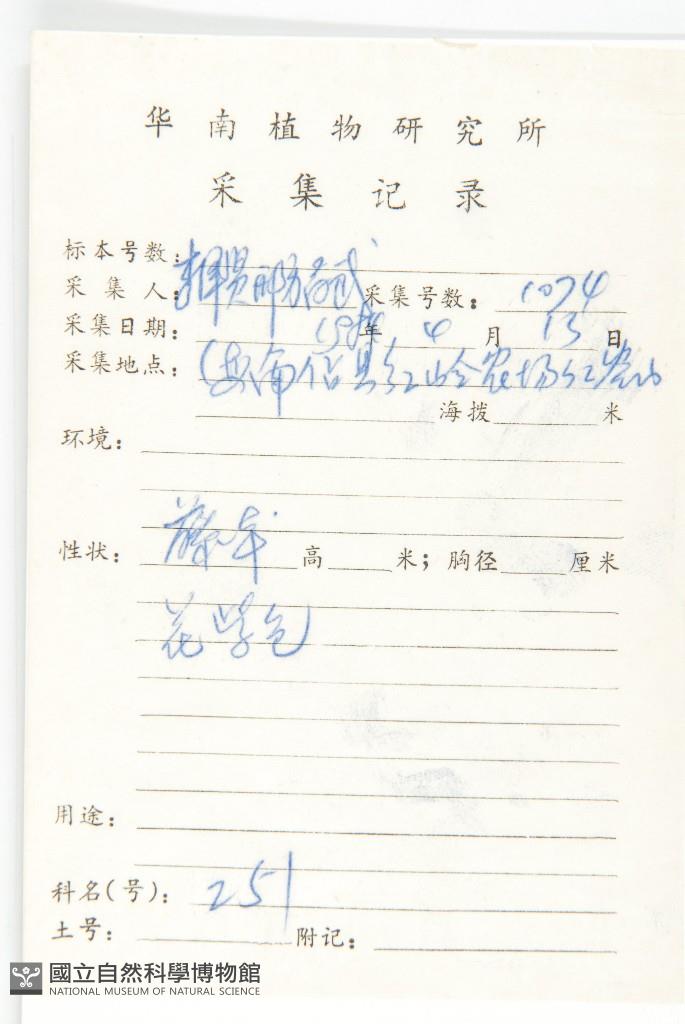 华南植物研究所
采集记录
标本号数：
采集人： 采集号数： 1074
采集日期： 年 4 月 13 日
采集地点： 信县红岭农场
海拨 米
环境：
性状： 藤本 高 米；胸径 厘米
花紫色
用途：
科名(号)： 251
土号： 附记：
國立自然科學博物館
NATIONAL MUSEUM OF NATURAL SCIENCE